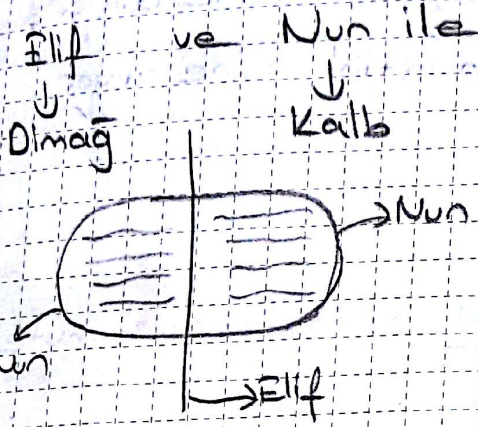 Elif ve Nun ile
↓ ↓
Dimağ Kalb
→Nun
un
→Elif